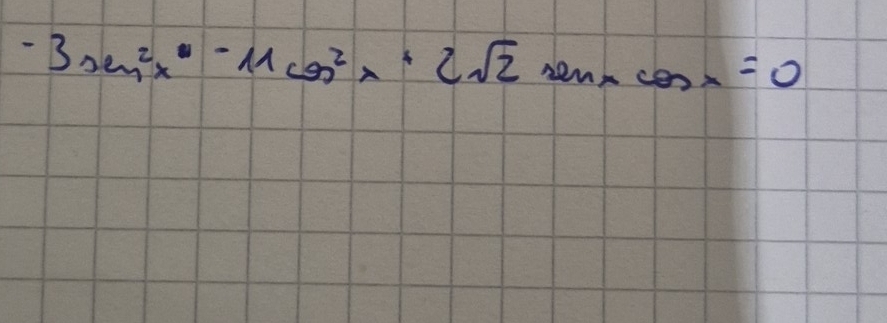 -3 sen²x - 11 cos²x + 2√2 senx cosx = 0